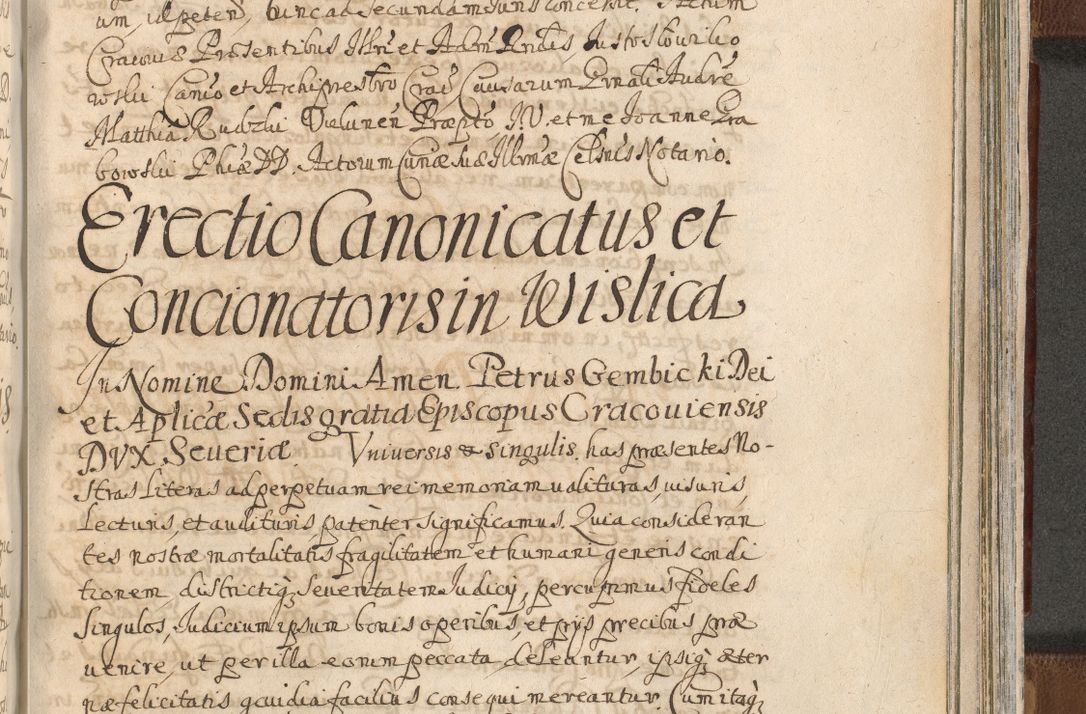 um, ul peteń, hunc ad secundam suns concessit. Actum
Cracoviæ Præsentibus Illri et Adm Rndis Justo Slowiko
wski Canco et Archipresbro Crac Causarum Prnali Andre
Matthia Rudzki Vielunen Præpto J.V. et me Joanne Gra
bowski Phiæ DD. Actorum Curiæ suæ Illrmæ Celsnis Notario.
Erectio Canonicatus et
Concionatoris in Wislica
In Nomine Domini Amen. Petrus Gembicki Dei
et Aplicæ Sedis gratia Episcopus Cracoviensis
DVX Severiæ Vniversis & singulis, has præsentes No-
stras Literas ad perpetuam rei memoriam valituras, visuris,
Lecturis, et audituris patenter significamus. Quia consideran
tes nostræ mortalitatis fragilitatem et humani generis condi
tionem, districtiq; Severitatem Judicij, percupimus fideles
Singulos, Judicium ipsum bonis operibus, et pijs precibus præ
venire, ut per illa eorum peccata deleantur, ipsiq; æter
næ felicitatis gaudia facilius consequi mereantur. Cum itaq;